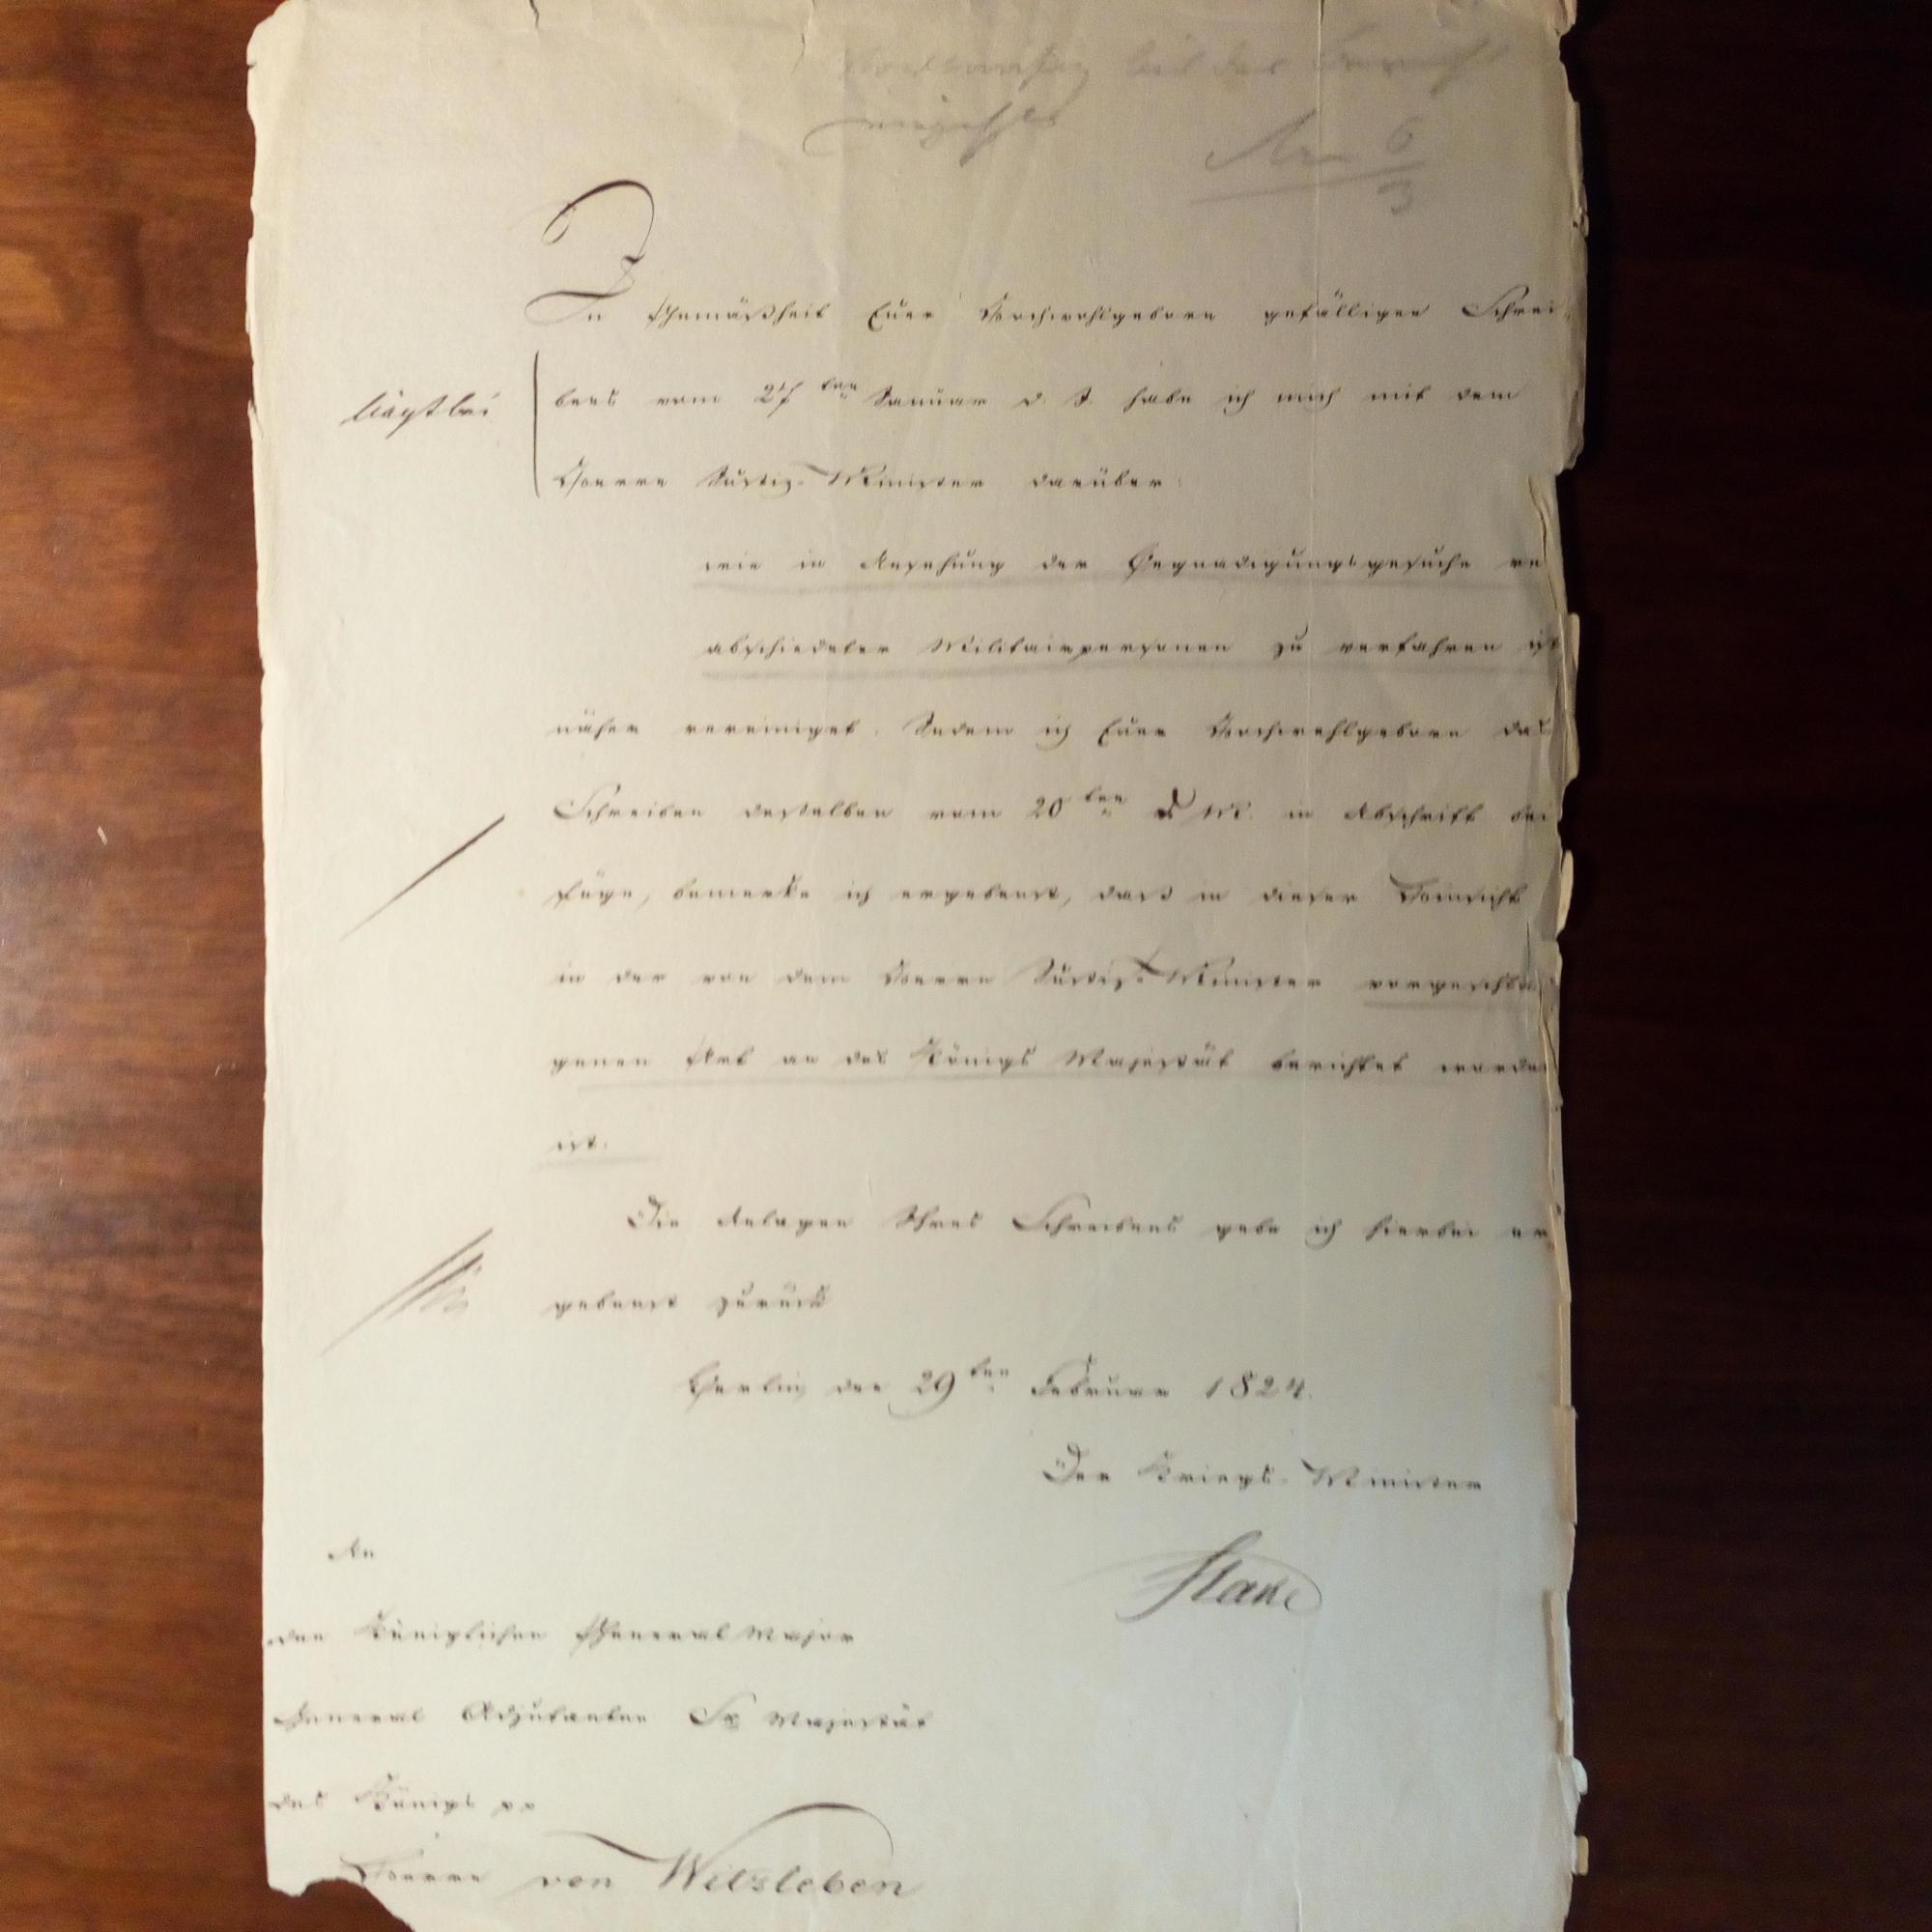 In Gemäßheit Euer Hochwohlgeboren gefälligen Schrei-
bens vom 27ten Januar d. J. habe ich mich mit dem
liegt bei
Herrn Justiz-Minister darüber:
wie in Ansehung der Begnadigungsgesuche ver
abschiedeter Militairpersonen zu verfahren ist
näher vereiniget. Indem ich Euer Hochwohlgeboren das
Schreiben desselben vom 20ten d. M. in Abschrift bei
füge, bemerke ich ergebenst, daß in dieser Hinsicht
in der von dem Herrn Justiz-Minister vorgeschla
genen Art an des Königs Majestät berichtet worden
ist.
Die Anlagen Ihres Schreibens gebe ich hierbei er
gebenst zurück
Berlin den 29ten Februar 1824.
Der Kriegs-Minister
An
Hake
den Königlichen General Major
General Adjutanten Sr Majestät
des Königs pp
Herrn von Witzleben